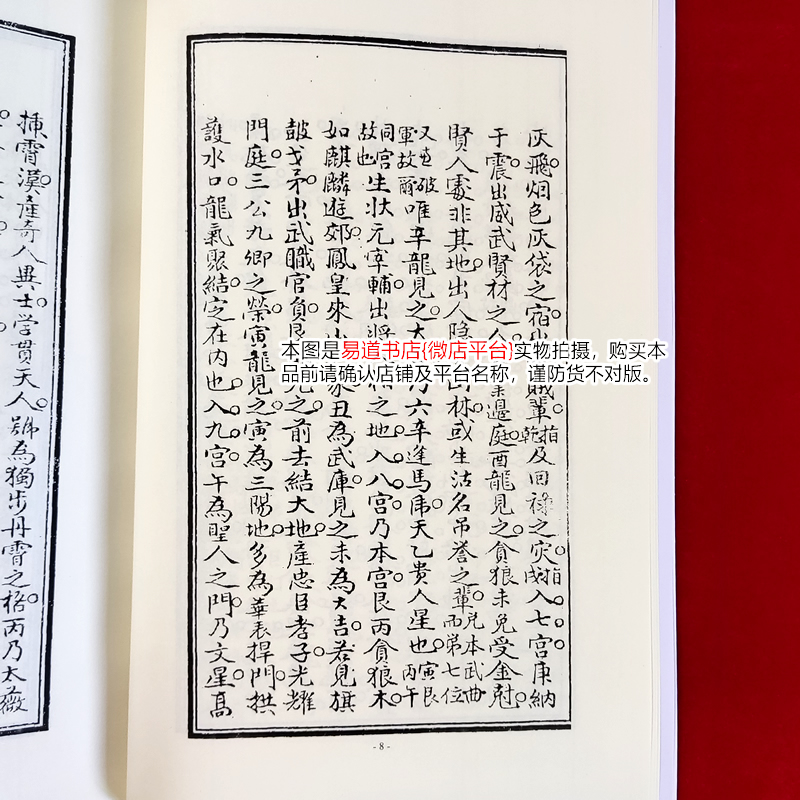 灰飛烟色灰袋之宿
賊輩乾指及回祿之灾戌指入七宮庚納
于震出威武賢材之人
邉庭酉龍見之貪狼未免受金尅
賢人處非其地出人隐
林或生沽名吊誉之輩兑本武曲而第七位
又並破軍故爾唯辛龍見之大
乃六辛逢馬席天乙貴人星也寅艮丙午
同宫故也生狀元宰輔出將
相之地入八宮乃本宮艮丙貪狼木
如麒麟遊郊鳳皇來
丑為武庫見之未為大吉若見旗
皷戈矛出武職官負
之前去結大地產忠臣孝子光耀
門庭三公九卿之榮寅龍見之寅為三陽地多為華表捍門拱
護水口龍氣聚結定在内也入九宮午為聖人之門乃文星高
揷霄漢産奇人異士学貫天人號為獨步丹霄之格丙乃太薇
本图是易道书店{微店平台}实物拍摄，购买本
品前请确认店铺及平台名称，谨防货不对版。
- 8 -